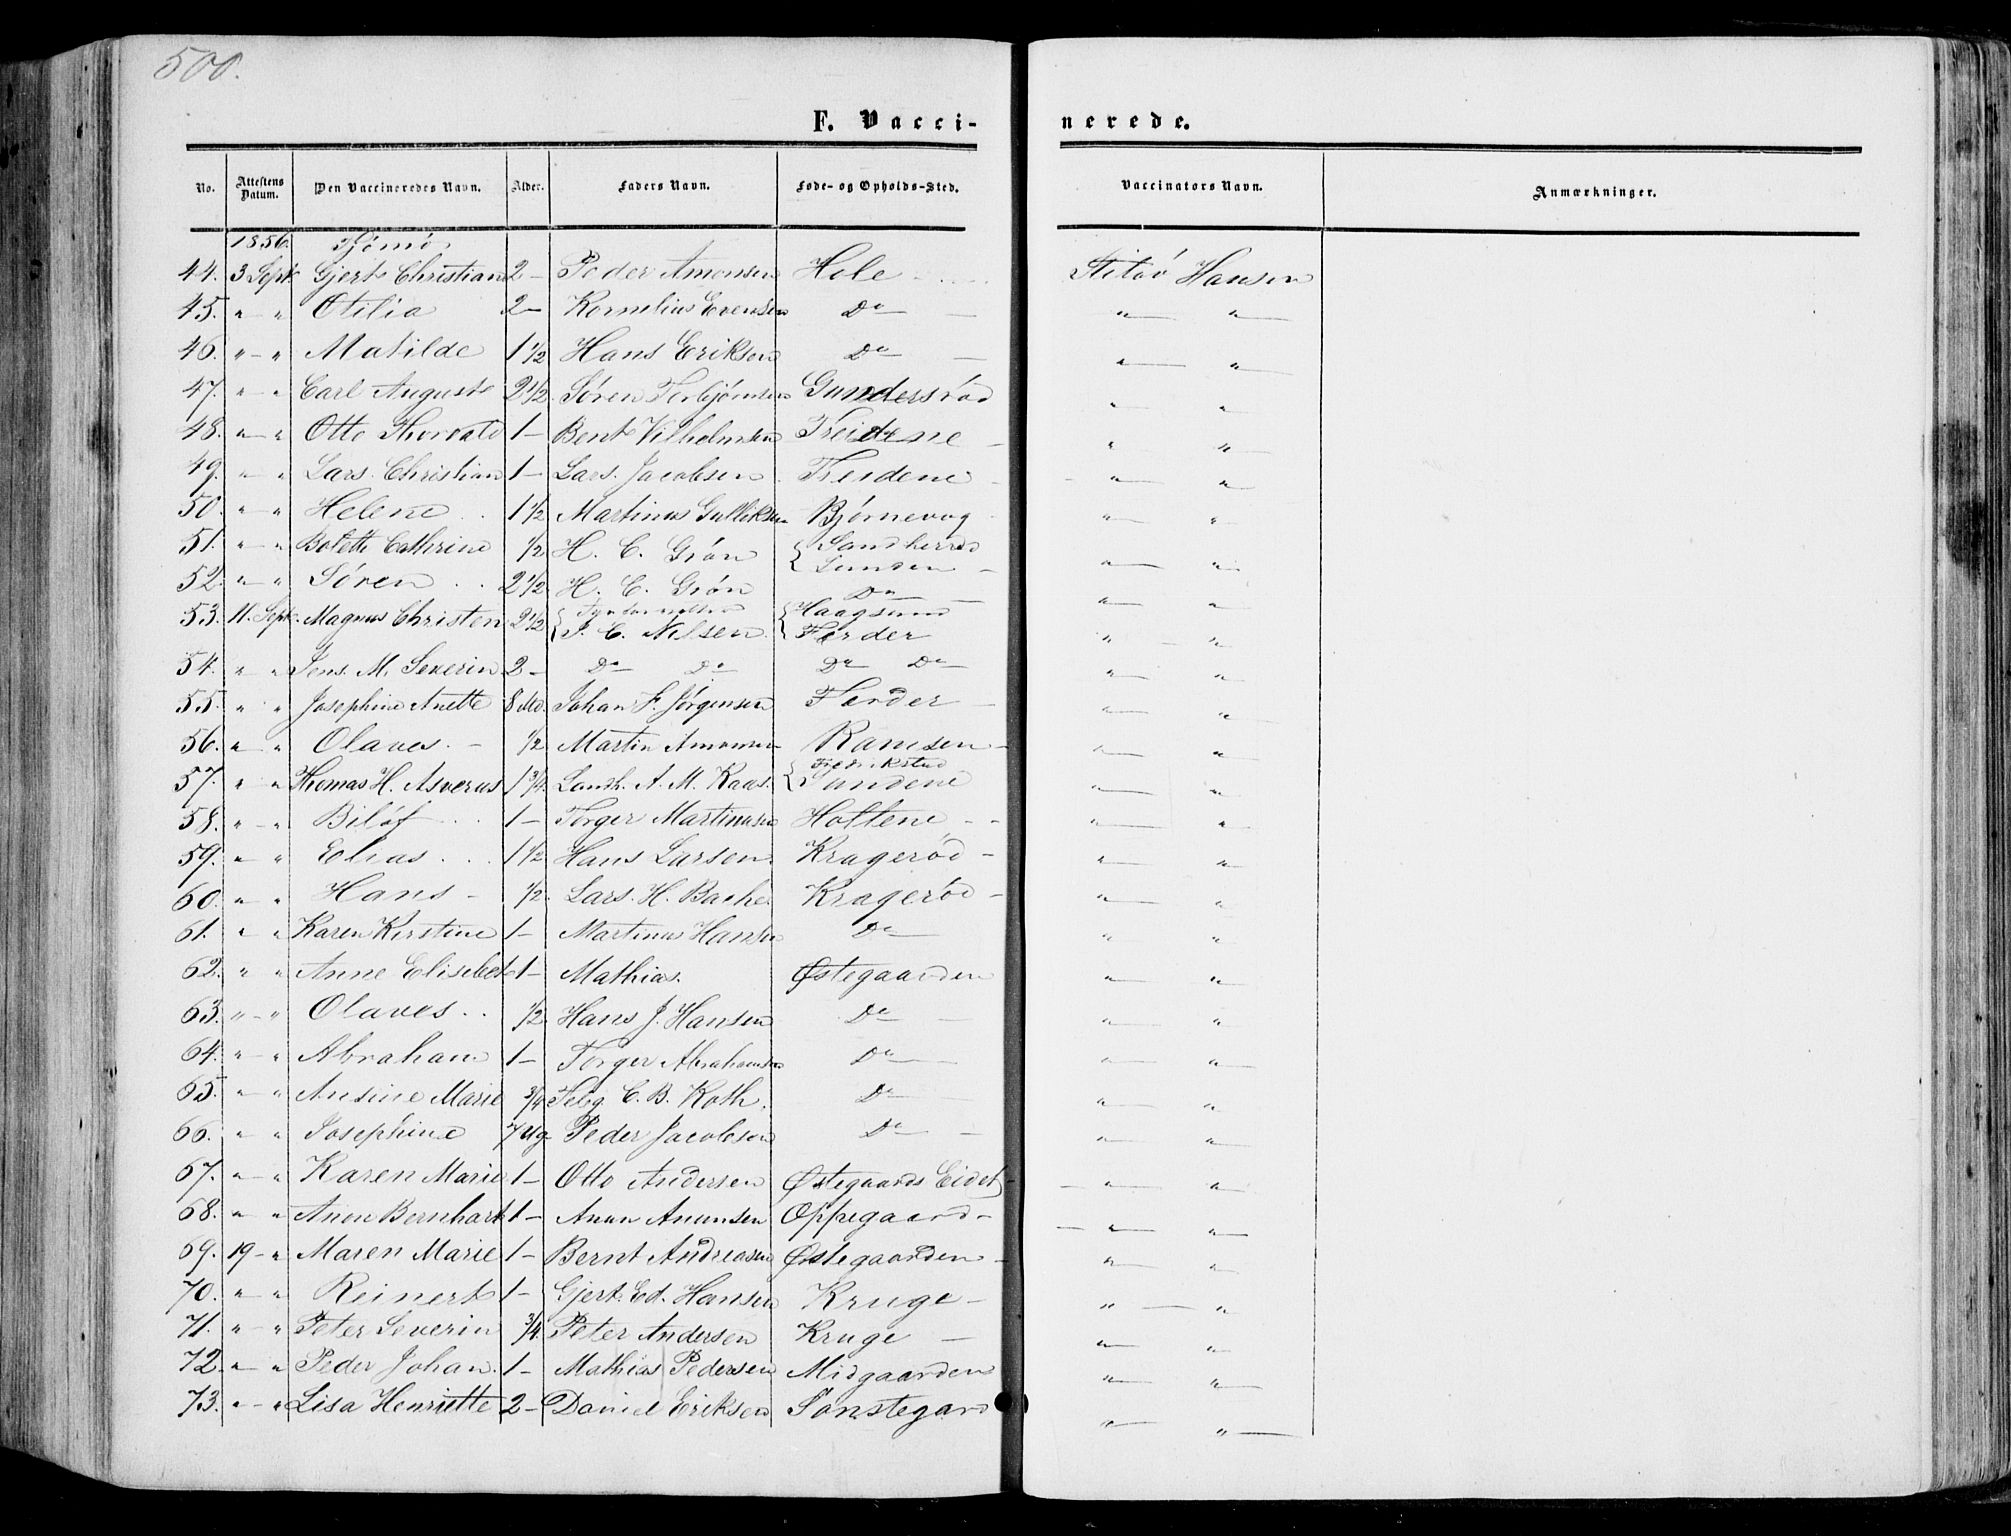 500.
F. Vacci-
nerede.
No. Attestens Datum. Den Vaccineredes Navn. Alder. Faders Navn. Føde- og Opholds-Sted. Vaccinators Navn. Anmærkninger.
1856. Tjömö
44. 3 Sept. Gjert Christian 2 - Peder Amonsen Hole - Hansen
45. " - " Otilia 2 - Kornelius Evensen Do - " "
46. " - " Matilde 1 1/2 Hans Eriksen Do - " "
47. " - " Carl August 2 1/2 Sören Torbjörnsen Gundersröd " "
48. " - " Otto Thorvald 1 - Bent Vilhelmsen Treidene - " "
49. " - " Lars Christian 1 - Lars Jacobsen Treidene - " "
50. " - " Helene 1 1/2 Martinus Gulliksen Björnevog " "
51. " - " Bolette Cathrine 1/2 H. C. Grön { Sandherred " "
52. " - " Sören 2 1/2 H. C. Grön Do " "
53. 11. Sept. Magnus Christen 2 1/2 { J. C. Nilsen { Haagsund Færder " "
54. " - " Jens M. Severin 2 - Do Do Do Do " "
55. " " Josephine Anette 8 Md. Johan F. Jörgensen Færder - " "
56. " " Olaves. - 1/2 Martin Amonsen Ramsen - " "
57. " " Thomas H. Asverus 1 3/4 A. M. Kaas. { Fredrikstad Sundene " "
58. " - " Bilöf 1 - Torger Martinusen Holtene - - " "
59. " " Elias 1 1/2 Hans Larsen Krageröd - " "
60. " " Hans - 1/2 Lars. H. Bache Krageröd - " "
61. " " Karen Kirstine 1 - Martinus Hansen Do " "
62. " " Anne Elisebet 1 - Mathias. Østegaarden " "
63. " - " Olaves 1/2 Hans J. Hansen Do - " "
64. " - " Abraham 1 - Torger Abrahamsen Do " "
65. " - " Ansine Marie 3/4 C. B. Roth. Do " "
66. " - " Josephine 7 Ug. Peder Jacobsen Do - " "
67. " - " Karen Marie 1 - Otto Andersen Østegaards Eidet - " "
68. " " Anon Bernhart 1 - Anun Anunsen Oppegaard - " "
69. 19 - " Maren Marie 1 - Bernt Andreasen Østegaarden - " "
70. " - " Reinert 1 - Gjert Ed. Hansen Kruge - " "
71. " - " Peter Severin 3/4 Peter Andersen Kruge - " "
72. " - " Peder Johan. 1 - Mathias Pedersen Midgaarden " "
73. " - " Lisa Henriette 2 - Daniel Eriksen Sönstegard " "